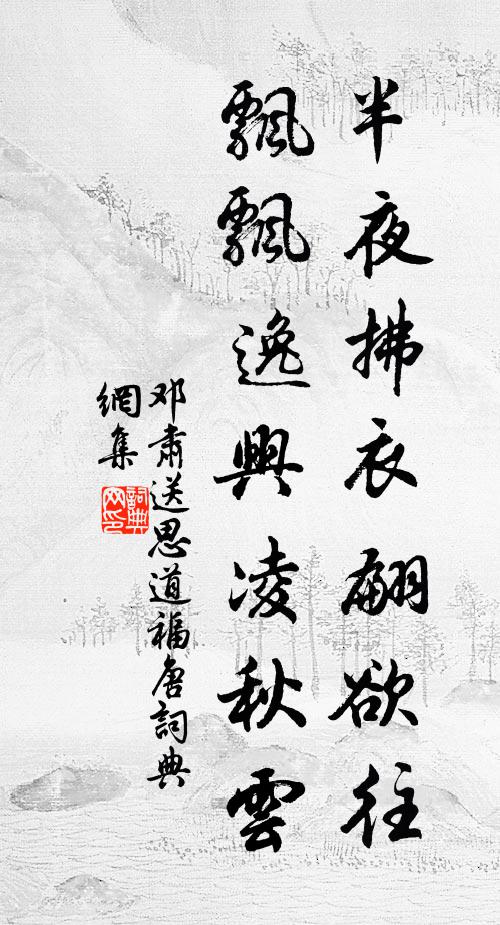 半夜拂衣翩欲往
飄飄逸興凌秋雲
邓肅送思道福唐詞典
網集
詞典網印